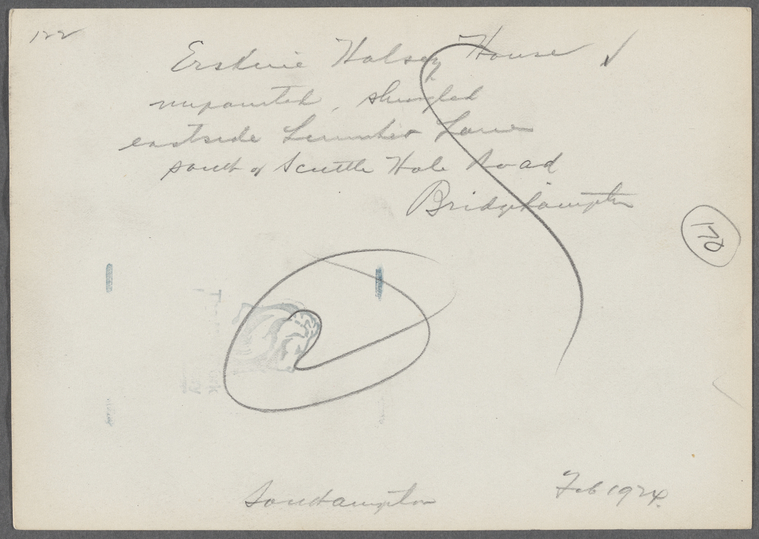 122
Erskine Halsey House
unpainted, shingled
eastside Lumber Lane
south of Scuttle Hole Road
Bridgehampton
170
Southampton
Feb 1924.